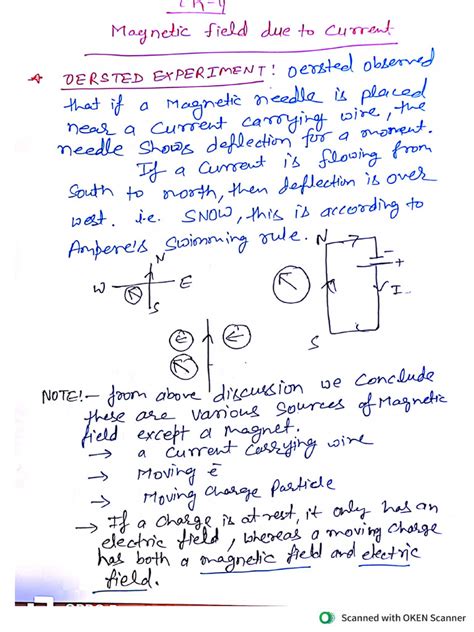 Magnetic field due to Current
OERSTED EXPERIMENT! Oersted observed
that if a Magnetic needle is placed
near a Current carrying wire, the
needle shows deflection for a moment.
If a Current is flowing from
South to north, then deflection is over
west. i.e. SNOW, this is according to
Ampere's Swimming rule.
N
N
W
E
S
-
+
I
S
NOTE!— from above discussion we conclude
these are various sources of Magnetic
field except a magnet.
→ a Current carrying wire
→ Moving ē
→ Moving Charge Particle
→ If a charge is at rest, it only has an
electric field, whereas a moving charge
has both a magnetic field and electric
field.
Scanned with OKEN Scanner